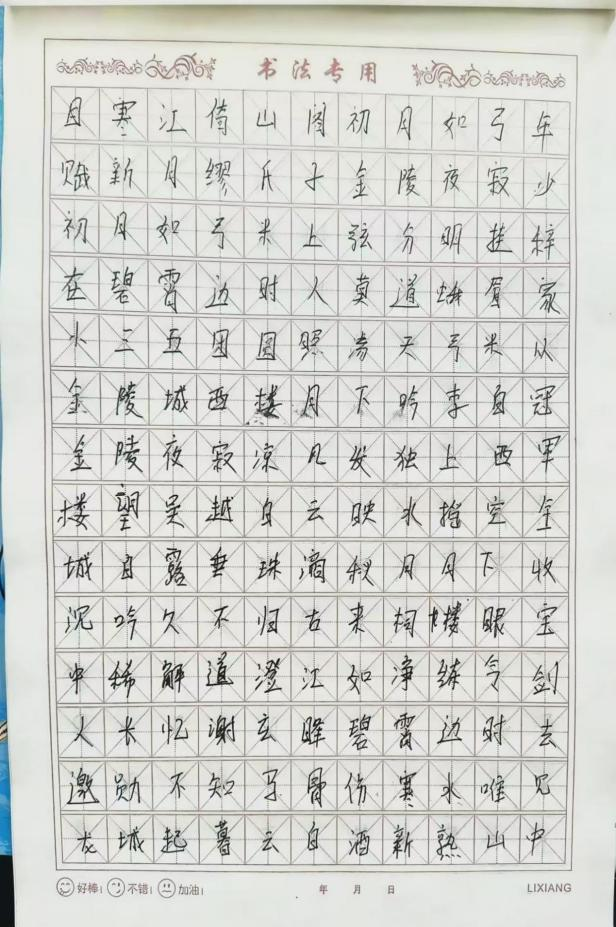 书法专用
目寒江倚山阁初月如弓年
赋新月缪氏子金陵夜寂少
初月如弓米上弦分明挂辞
在碧霄边时人莫道蛾眉家
小三五团圆照满天弓米从
金陵城西楼月下吟李白冠
金陵夜寂凉风发独上西军
楼望吴越白云映水摇空金
城白露垂珠滴秋月月下收
沉吟久不归古来相楼眼宝
中稀解道澄江如净练令剑
人长忆谢玄晖碧霄边时去
邀勋不知马骨伤寒水唯见
龙城起暮云白酒新熟山中
好棒! 不错! 加油! 年 月 日 LIXIANG